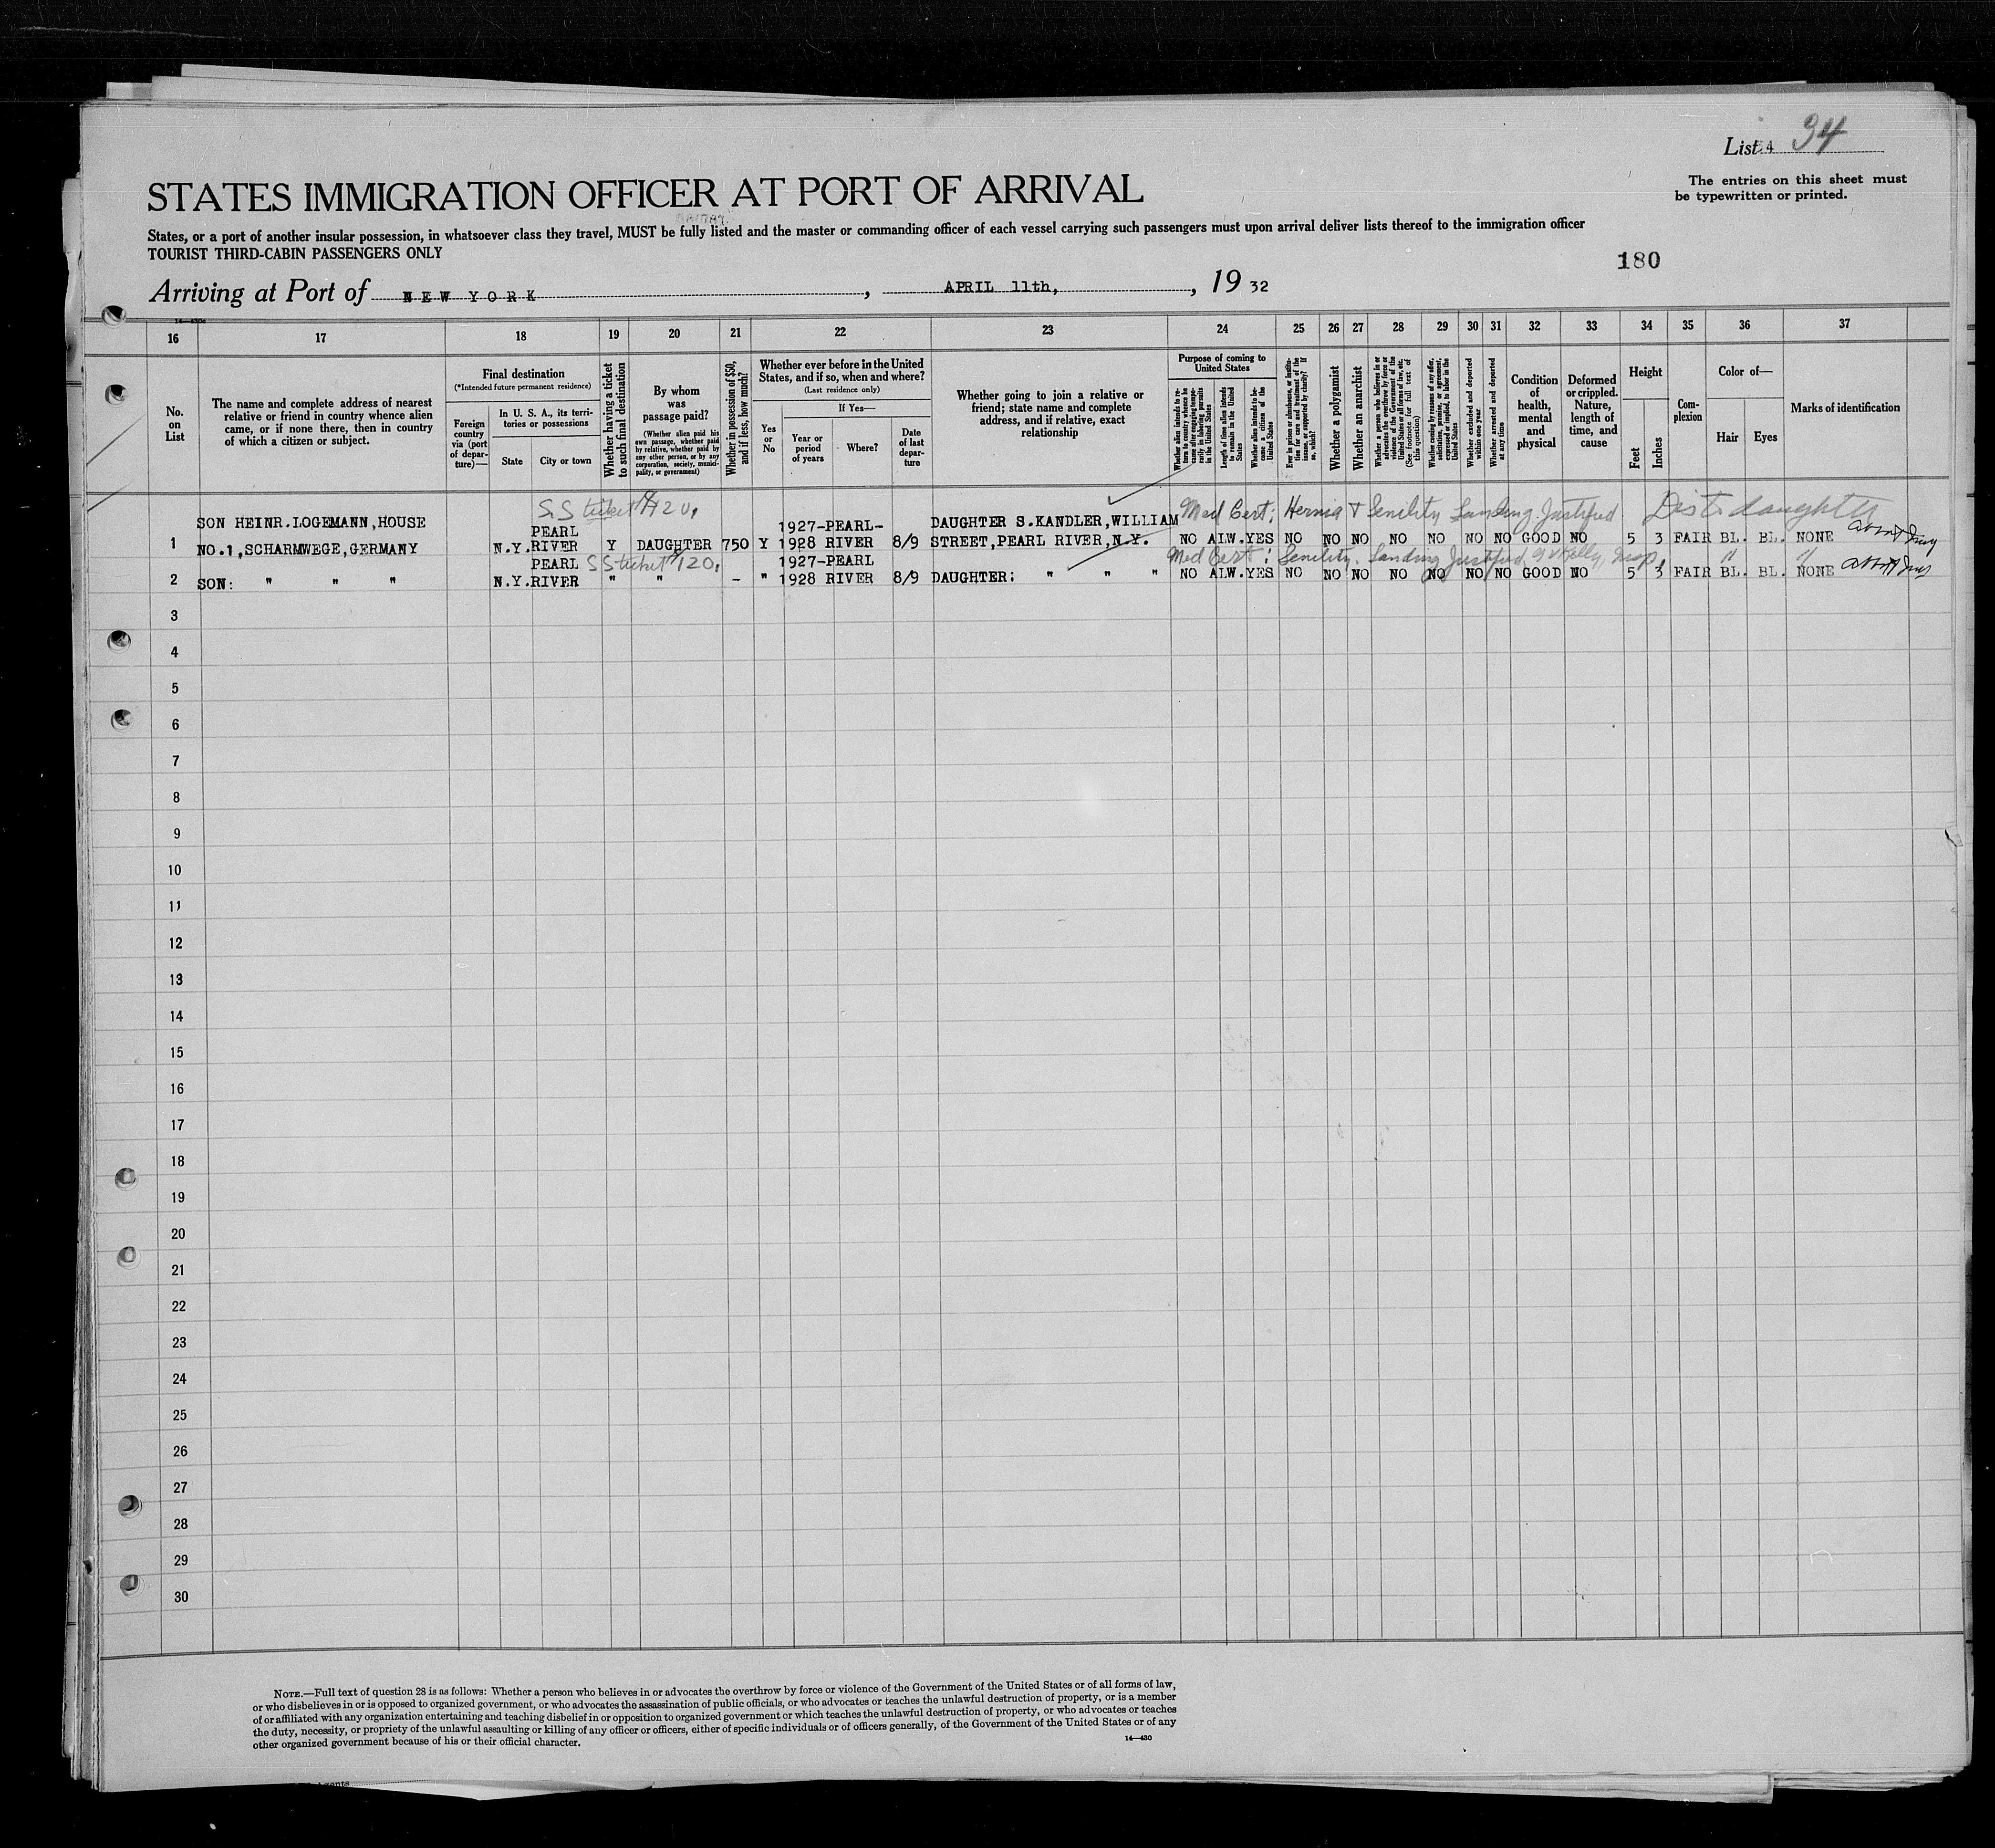 List 4 34
The entries on this sheet must
be typewritten or printed.
STATES IMMIGRATION OFFICER AT PORT OF ARRIVAL
States, or a port of another insular possession, in whatsoever class they travel, MUST be fully listed and the master or commanding officer of each vessel carrying such passengers must upon arrival deliver lists thereof to the immigration officer
TOURIST THIRD-CABIN PASSENGERS ONLY
180
Arriving at Port of NEW YORK, APRIL 11th, 1932
16 17 18 19 20 21 22 23 24 25 26 27 28 29 30 31 32 33 34 35 36 37
No.
on
List
The name and complete address of nearest
relative or friend in country whence alien
came, or if none there, then in country
of which a citizen or subject.
Final destination
(*Intended future permanent residence)
Foreign
country
via (port
of depar-
ture)—
In U. S. A., its terri-
tories or possessions
State
City or town
Whether having a ticket
to such final destination
By whom
was
passage paid?
(Whether alien paid his
own passage, whether paid
by relative, whether paid by
any other person, or by any
corporation, society, munici-
pality, or government)
Whether in possession of $50,
and if less, how much?
Whether ever before in the United
States, and if so, when and where?
(Last residence only)
Yes
or
No
If Yes—
Year or
period
of years
Where?
Date
of last
depar-
ture
Whether going to join a relative or
friend; state name and complete
address, and if relative, exact
relationship
Purpose of coming to
United States
Whether alien intends to re-
turn to country whence he
came after engaging tempo-
rarily in laboring pursuits
in the United States
Length of time alien intends
to remain in the United
States
Whether alien intends to be-
come a citizen of the
United States
Ever in prison or almshouse, or institu-
tion for care and treatment of the
insane, or supported by charity? If
so, which?
Whether a polygamist
Whether an anarchist
Whether a person who believes in or
advocates the overthrow by force or
violence of the Government of the
United States or all forms of law, etc.
(See footnote for full text of
this question)
Whether coming by reason of any offer,
solicitation, promise, or agreement,
expressed or implied, to labor in the
United States
Whether excluded and deported
within one year
Whether arrested and deported
at any time
Condition
of
health,
mental
and
physical
Deformed
or crippled.
Nature,
length of
time, and
cause
Height
Feet
Inches
Com-
plexion
Color of—
Hair
Eyes
Marks of identification
S.S ticket $120. Med Cert: Hernia & Senility Landing Justified Dist. daughter
SON HEINR.LOGEMANN,HOUSE PEARL 1927-PEARL- DAUGHTER S.KANDLER,WILLIAM
1 NO.1,SCHARMWEGE,GERMANY N.Y. RIVER Y DAUGHTER 750 Y 1928 RIVER 8/9 STREET,PEARL RIVER,N.Y. NO ALW. YES NO NO NO NO NO NO NO GOOD NO 5 3 FAIR BL. BL. NONE
PEARL SS ticket $120. 1927-PEARL Med Cert: Senility. Landing Justified " "
2 SON: " " " N.Y. RIVER " " - " 1928 RIVER 8/9 DAUGHTER: " " " NO ALW. YES NO NO NO NO NO NO NO GOOD NO 5 3 FAIR BL. BL. NONE
3
4
5
6
7
8
9
10
11
12
13
14
15
16
17
18
19
20
21
22
23
24
25
26
27
28
29
30
NOTE.—Full text of question 28 is as follows: Whether a person who believes in or advocates the overthrow by force or violence of the Government of the United States or of all forms of law,
or who disbelieves in or is opposed to organized government, or who advocates the assassination of public officials, or who advocates or teaches the unlawful destruction of property, or is a member
of or affiliated with any organization entertaining and teaching disbelief in or opposition to organized government or which teaches the unlawful destruction of property, or who advocates or teaches
the duty, necessity, or propriety of the unlawful assaulting or killing of any officer or officers, either of specific individuals or of officers generally, of the Government of the United States or of any
other organized government because of his or their official character.
14—430